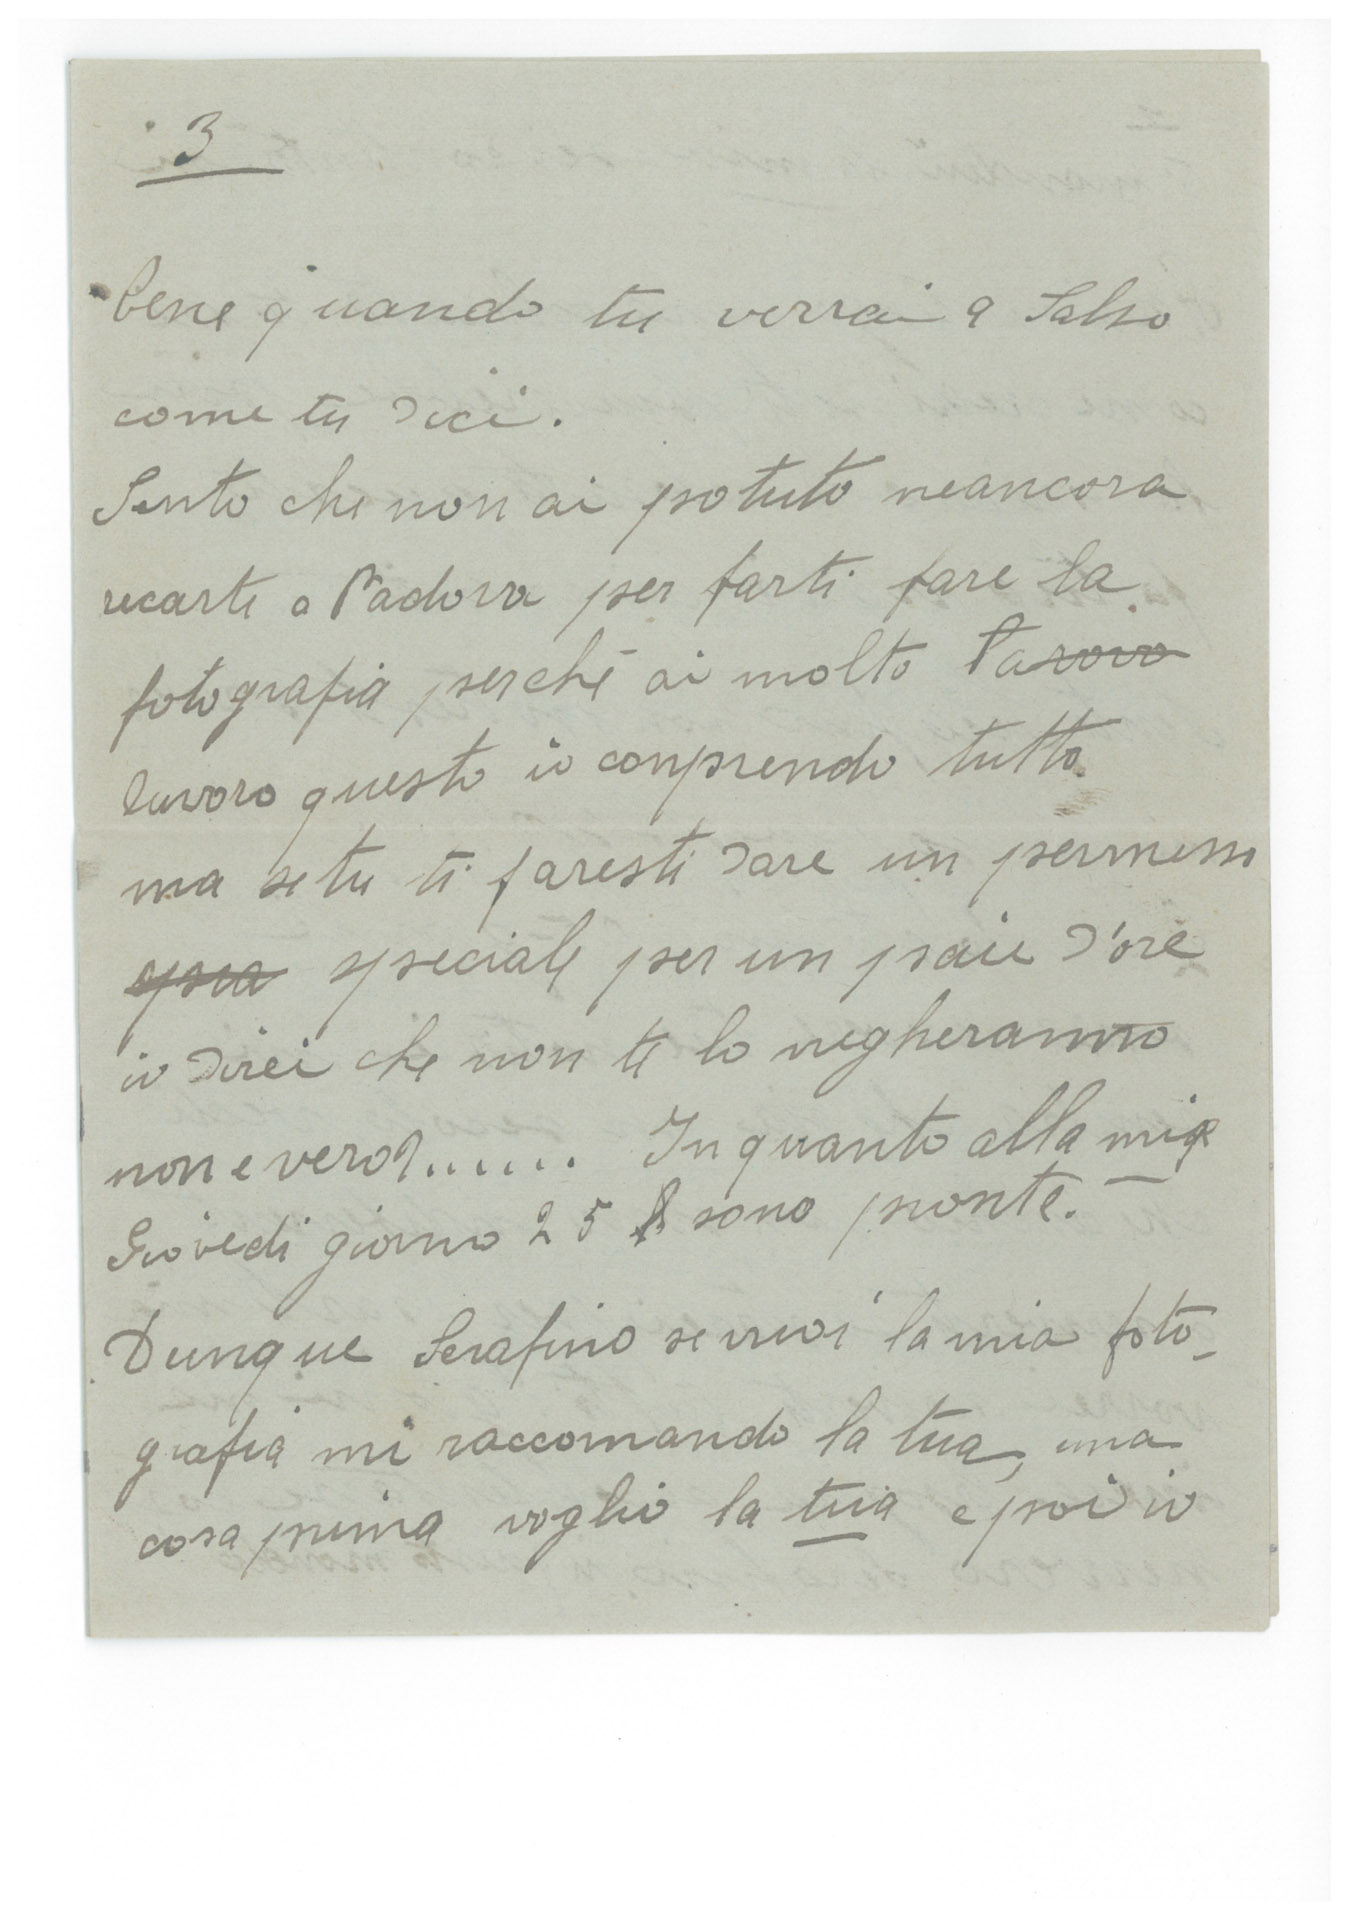 3
bene quando tu verrai a Salso
come tu dici.
Sento che non ai potuto neancora
recarti a Padova per farti fare la
fotografia perché ai molto
lavoro questo io conprendo tutto.
ma se tu ti faresti dare un permesso
speciale per un paie d'ore
io direi che non te lo negheranno
non e vero?...... In quanto alla mia
Giovedi giorno 25 sono pronte.
Dunque Serafino se vuoi la mia foto-
grafia mi raccomando la tua, una
cosa prima voglio la tua e poi io